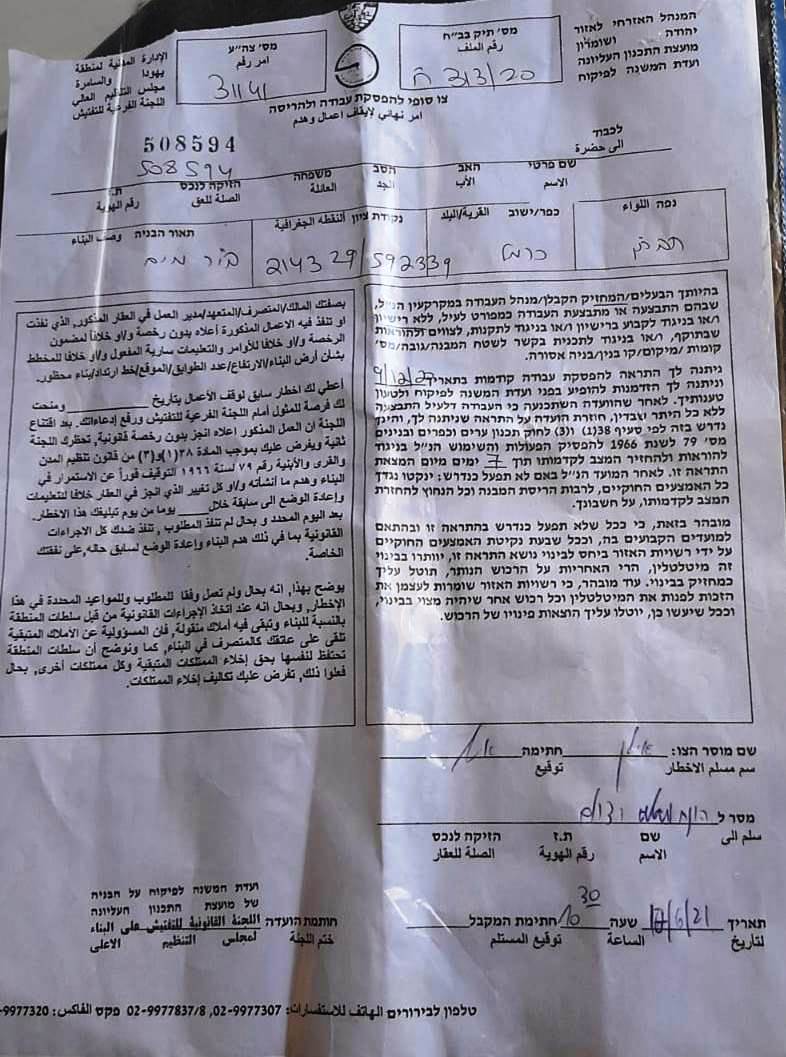 המנהל האזרחי לאזור
יהודה ושומרון
מועצת התכנון העליונה
ועדת המשנה לפיקוח
מס׳ תיק בב״ח
رقم الملف
ח 313/20
מס׳ צה״ע
امر رقم
31141
الإدارة المدنية لمنطقة
يهودا والسامرة
مجلس التنظيم العالي
اللجنة الفرعية للتفتيش
צו סופי להפסקת עבודה ולהריסה
امر نهائي لإيقاف اعمال وهدم
508594
508594
לכבוד
الى حضرة
שם פרטי האב הסב משפחה הזיקה לנכס ת.ז
الاسم الأب الجد العائلة الصلة للعقار رقم الهوية
נפה اللواء כפר/ישוב القرية/البلد נקודת ציון النقطة الجغرافية תאור הבניה وصف البناء
חברון כרמל 592339 / 214329 בור מים
בהיותך הבעלים/המחזיק הקבלן/מנהל העבודה במקרקעין הנ״ל,
שבהם התבצעה או מתבצעת העבודה כמפורט לעיל, ללא רישיון
ו/או בניגוד לקבוע ברישיון ו/או בניגוד לתקנות, לצווים ולהוראות
שבתוקף, ו/או בניגוד לתכנית בקשר לשטח המבנה/גובה/מס׳
קומות /מיקום/קו בנין/בניה אסורה.
ניתנה לך התראה להפסקת עבודה קודמות בתאריך
וניתנה לך הזדמנות להופיע בפני ועדת המשנה לפיקוח ולטעון
טענותיך. לאחר שהוועדה השתכנעה כי העבודה דלעיל התבצעה
ללא כל היתר שבדין, חוזרת הועדה על התראה שניתנה לך, והינך
נדרש בזה לפי סעיף 38(1) ו(3) לחוק תכנון ערים וכפרים ובנינים
מס׳ 79 לשנת 1966 להפסיק הפעולות והשימוש הנ״ל בניגוד
להוראות ולהחזיר המצב לקדמותו תוך 7 ימים מיום המצאת
התראה זו. לאחר המועד הנ״ל באם לא תפעל כנדרש: ינקטו נגדך
כל האמצעים החוקיים, לרבות הריסת המבנה וכל הנחוץ להחזרת
המצב לקדמותו, על חשבונך.
מובהר בזאת, כי ככל שלא תפעל כנדרש בהתראה זו ובהתאם
למועדים הקבועים בה, וככל שבעת נקיטת האמצעים החוקיים
על ידי רשויות האזור ביחס לבינוי נושא התראה זו, יוותרו בבינוי
זה מיטלטלין, הרי האחריות על הרכוש הנותר, תוטל עליך
כמחזיק בבינוי. עוד מובהר, כי רשויות האזור שומרות לעצמן את
הזכות לפנות את המיטלטלין וכל רכוש אחר שיהיה מצוי בבינוי,
וככל שיעשו כן, יוטלו עליך הוצאות פינויו של הרכוש.
بصفتك المالك/المتصرف/المتعهد/مدير العمل في العقار المذكور, الذي نفذت
او تنفذ فيه الاعمال المذكورة أعلاه بدون رخصة و/او خلافاً لمضمون
الرخصة و/او خلافا للأوامر والتعليمات سارية المفعول و/او خلافا للمخطط
بشأن أرض البناء/الارتفاع/عدد الطوابق/الموقع/خط ارتداد/بناء محظور.
أعطي لك اخطار سابق لوقف الأعمال بتاريخ ومنحت
لك فرصة للمثول أمام اللجنة الفرعية للتفتيش ورفع إدعاءاتك. بعد اقتناع
اللجنة ان العمل المذكور اعلاه انجز بدون رخصة قانونية, تحظرك اللجنة
ثانية ويفرض عليك بموجب المادة ٣٨(١)و(٣) من قانون تنظيم المدن
والقرى والأبنية رقم ٧٩ لسنة ١٩٦٦ التوقيف فوراً عن الاستمرار في
البناء وهدم ما أنشأته و/او كل تغيير الذي انجز في العقار خلافا للتعليمات
وإعادة الوضع الى سابقة خلال يوما من يوم تبليغك هذا الاخطار.
بعد اليوم المحدد و بحال لم تنفذ المطلوب , تنفذ ضدك كل الاجراءات
القانونية بما في ذلك هدم البناء وإعادة الوضع لسابق حاله, على نفقتك
الخاصة.
يوضح بهذا, انه بحال ولم تعمل وفقا للمطلوب وللمواعيد المحددة في هذا
الإخطار, وبحال انه عند اتخاذ الإجراءات القانونية من قبل سلطات المنطقة
بالنسبة للبناء وتبقى فيه املاك منقولة, فان المسؤولية عن الاملاك المتبقية
تلقى على عاتقك كالمتصرف في البناء, كما ونوضح أن سلطات المنطقة
تحتفظ لنفسها بحق إخلاء الممتلكات المتبقية وكل ممتلكات أخرى, بحال
فعلوا ذلك, تفرض عليك تكاليف إخلاء الممتلكات.
שם מוסר הצו: חתימה
سم مسلم الاخطار توقيع
מסר ל
سلم الى
שם ת.ז הזיקה לנכס
الاسم رقم الهوية الصلة للعقار
תאריך 17/6/21 שעה 10 30 חתימת המקבל
لتاريخ الساعة توقيع المستلم
חותמת הועדה
ختم اللجنة
ועדת המשנה לפיקוח על הבניה
של מועצת התכנון העליונה
اللجنة القانونية للتفتيش على البناء
لمجلس التنظيم الاعلى
טלפון לבירורים الهاتف للاستفسارات: 02-9977307, 02-9977837/8 פקס الفاكس: 9977320